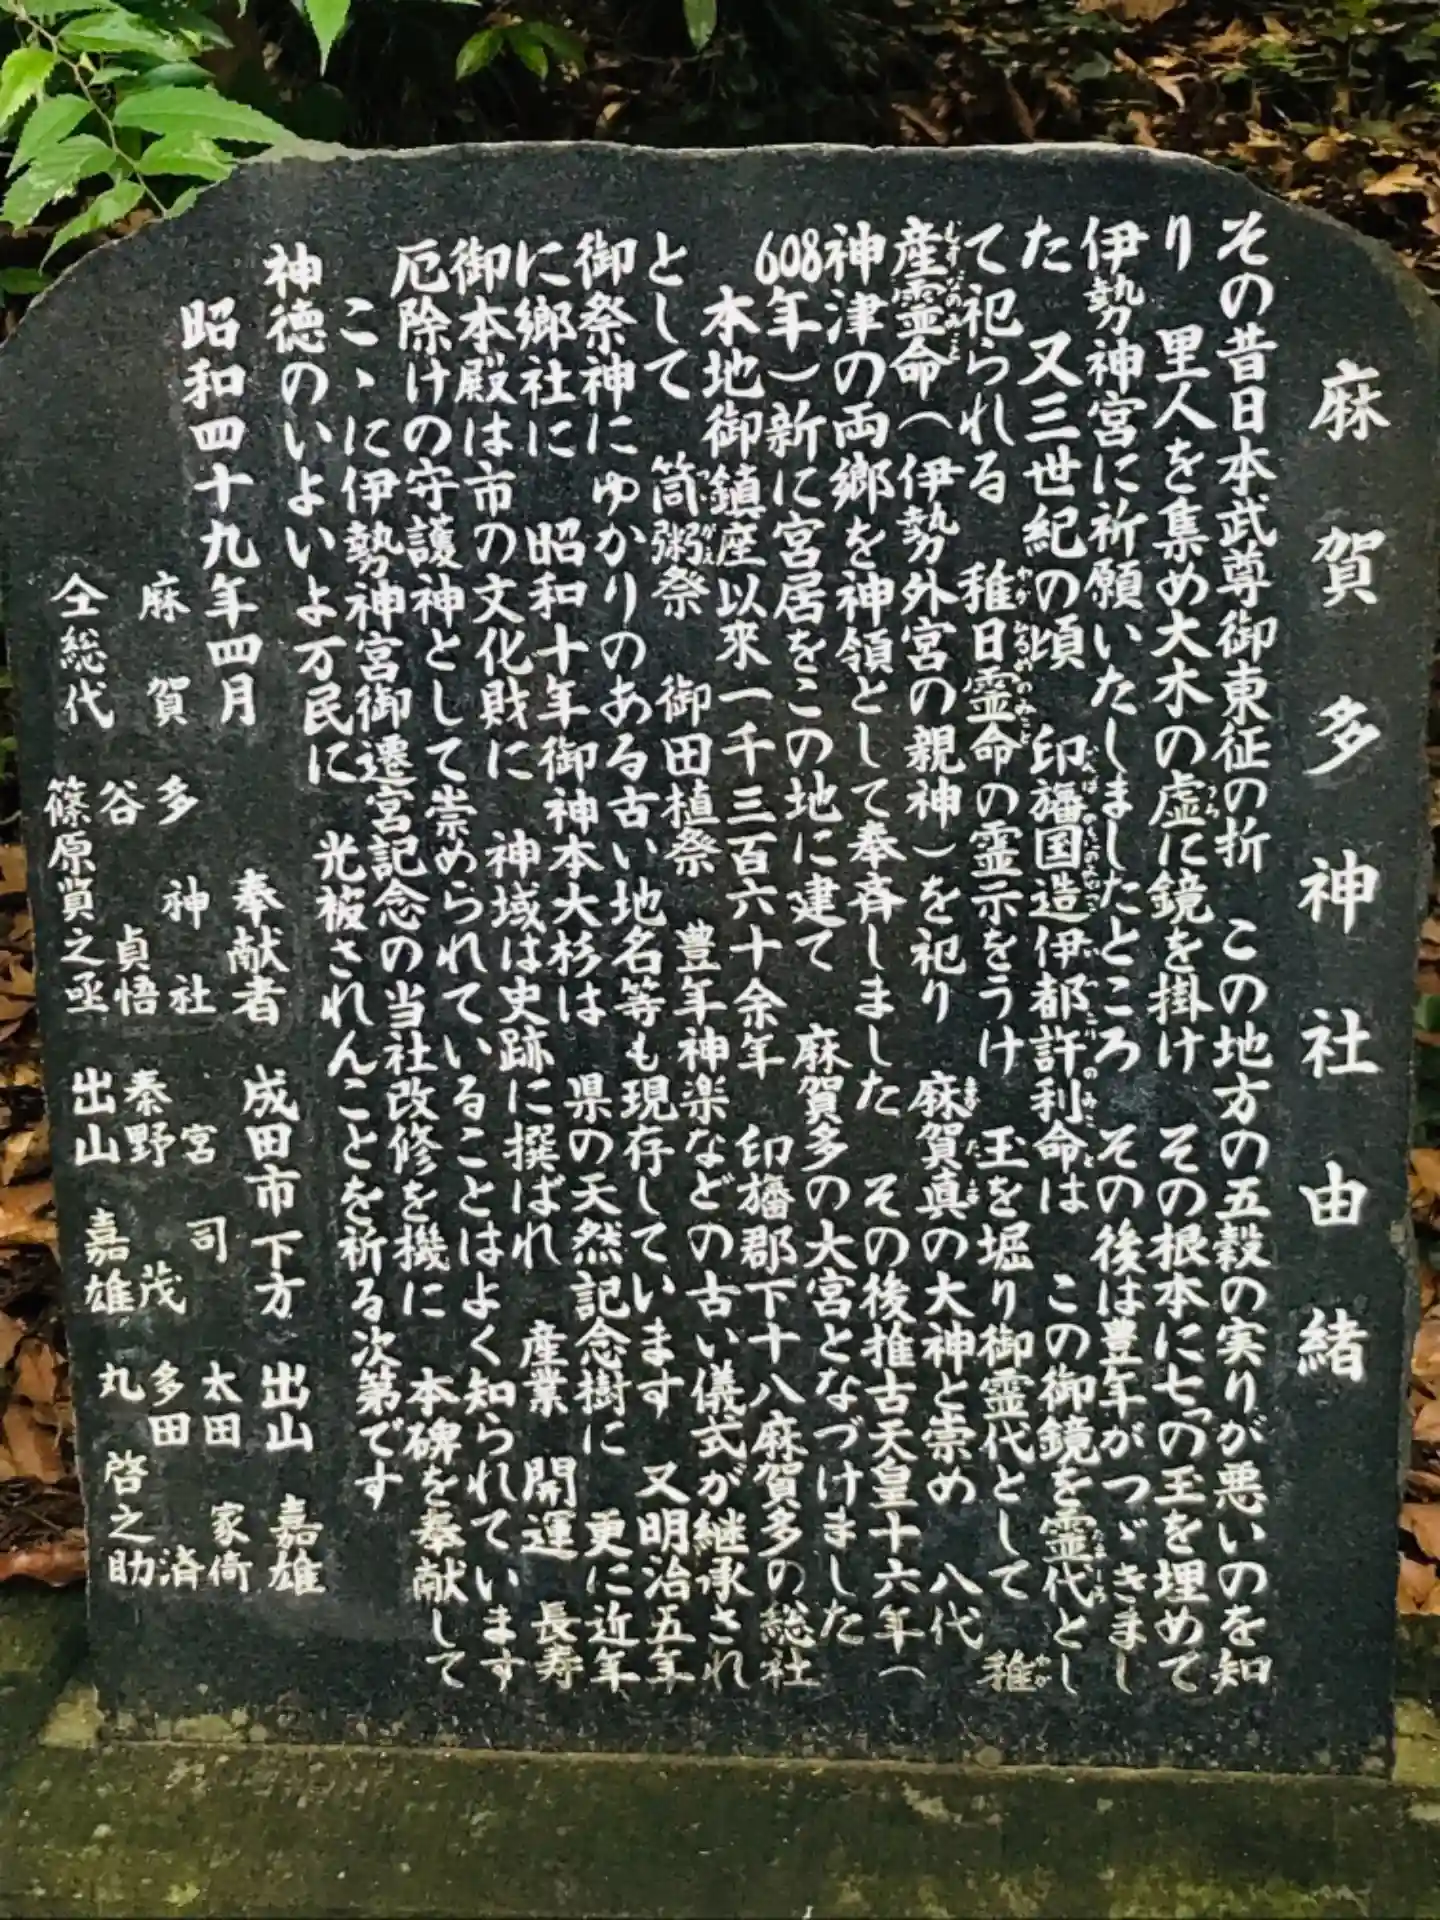 麻賀多神社由緒
その昔日本武尊御東征の折　この地方の五穀の実りが悪いのを知
り　里人を集め大木の虚に鏡を掛け　その根本に七つの玉を埋めて
伊勢神宮に祈願いたしましたところ　その後は豊年がつゞきまし
た　又三世紀の頃　印旛国造伊都許利命は　この御鏡を霊代とし
て祀られる　稚日霊命の霊示をうけ　玉を堀り御霊代として　稚
産霊命（伊勢外宮の親神）を祀り　麻賀真の大神と崇め　八代
神津の両郷を神領として奉斉しました　その後推古天皇十六年（
608年）新に宮居をこの地に建て　麻賀多の大宮となづけました
本地御鎮座以来一千三百六十余年　印旛郡下十八麻賀多の総社
として　筒粥祭　御田植祭　豊年神楽などの古い儀式が継承され
御祭神にゆかりのある古い地名等も現存しています　又明治五年
に郷社に　昭和十年御神本大杉は　県の天然記念樹に　更に近年
御本殿は市の文化財に　神域は史跡に撰ばれ　産業　開運　長寿
厄除けの守護神として崇められていることはよく知られています
こゝに伊勢神宮御遷宮記念の当社改修を機に　本碑を奉献して
神徳のいよいよ万民に　光被されんことを祈る次第です
昭和四十九年四月
奉献者　成田市下方　出山　嘉雄
麻賀多神社　宮司　太田　家倚
谷　貞悟　秦野　茂　多田　済
仝総代　篠原貿之亟　出山　嘉雄　丸　啓之助